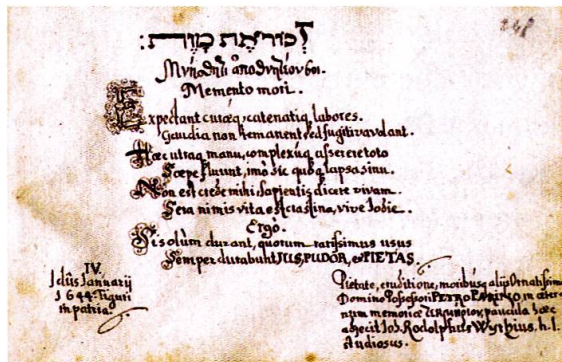 זכור את מות:
248
Memento mori.
Expectant curæq; catenatiq; labores.
Gaudia non remanent, sed fugitiva volant.
Hæc utraq; manu, complexuq; assere toto
Sæpe fluunt, imo sic quoq; lapsa sinu.
Non est crede mihi sapientis dicere vivam.
Sera nimis vita est crastina, vive hodie.
Ergò.
Si solùm durant, quorum rarissimus usus
Semper durabunt JUS, PUDOR, et PIETAS.
IV.
Idûs Januarij
1644. Tiguri
in patria.
Pietate, eruditione, moribusq; alijs Ornatissimo
Domino Possessori PETRO in æter-
num memoriæ paucula hæc
adjecit Joh. Rodolphus Wyrhius, h.l.
studiosus.